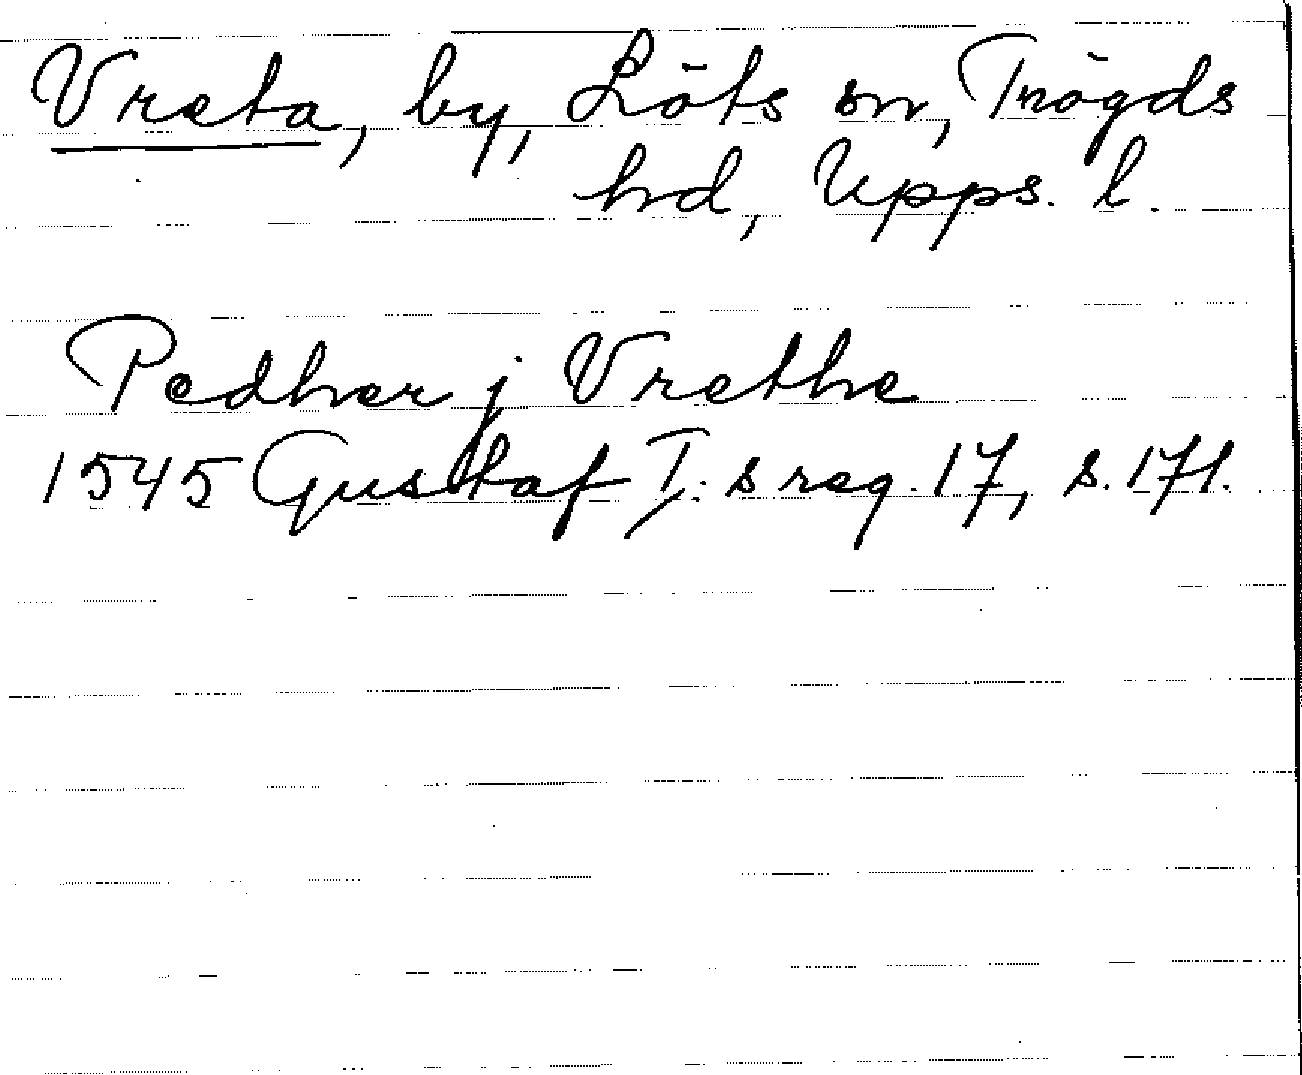 Vreta, by, Löts sn, Trögds
hd, Upps. l.
Pedher j Vrethe
1545 Gustaf I:s reg. 17, s. 171.